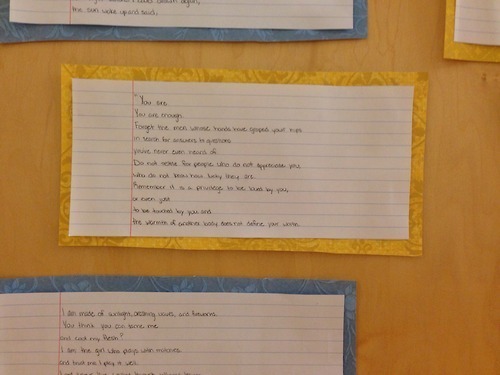 the sun woke up and said,
"You are.
You are enough.
Forget the men whose hands have grasped your hips
in search for answers to questions
you've never even heard of.
Do not settle for people who do not appreciate you,
who do not know how lucky they are.
Remember it is a privilege to be loved by you,
or even just
to be touched by you and
the warmth of another body does not define your worth.
I am made of sunlight, crashing waves, and fireworks.
You think you can tame me
and call my flesh?
I am the girl who plays with matches
and trust me I play it well.